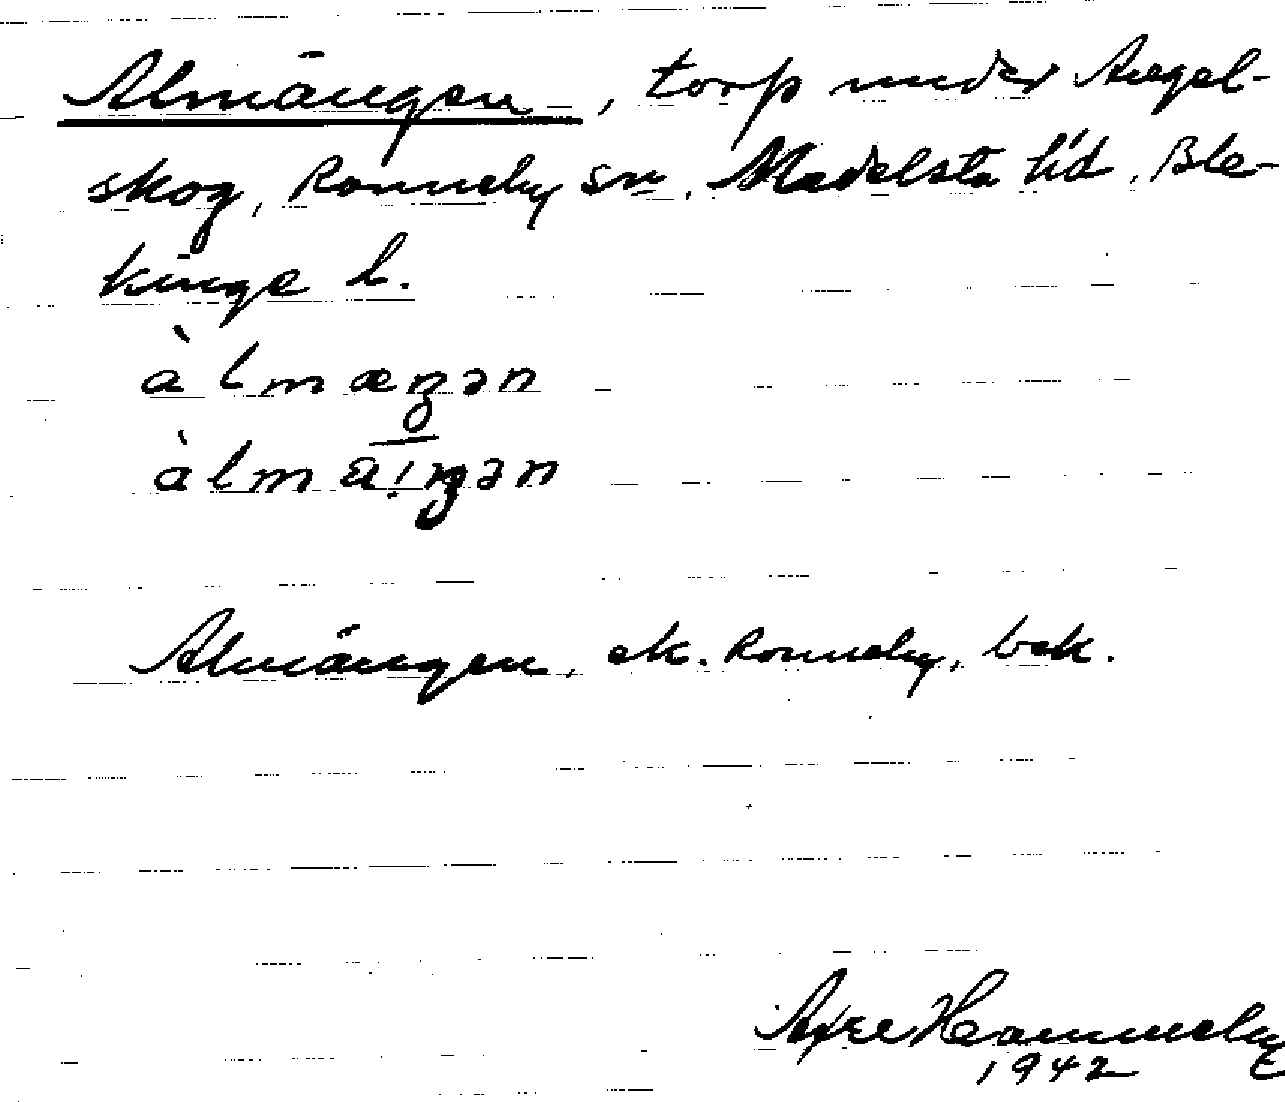 Almängen, torp under Angel-
skog, Ronneby sn, Medelsta hd, Ble-
kinge l.
àlmæŋən
àlmāi̯ŋən
Almängen, ek. Ronneby, bok.
Axel Hammeby
1942